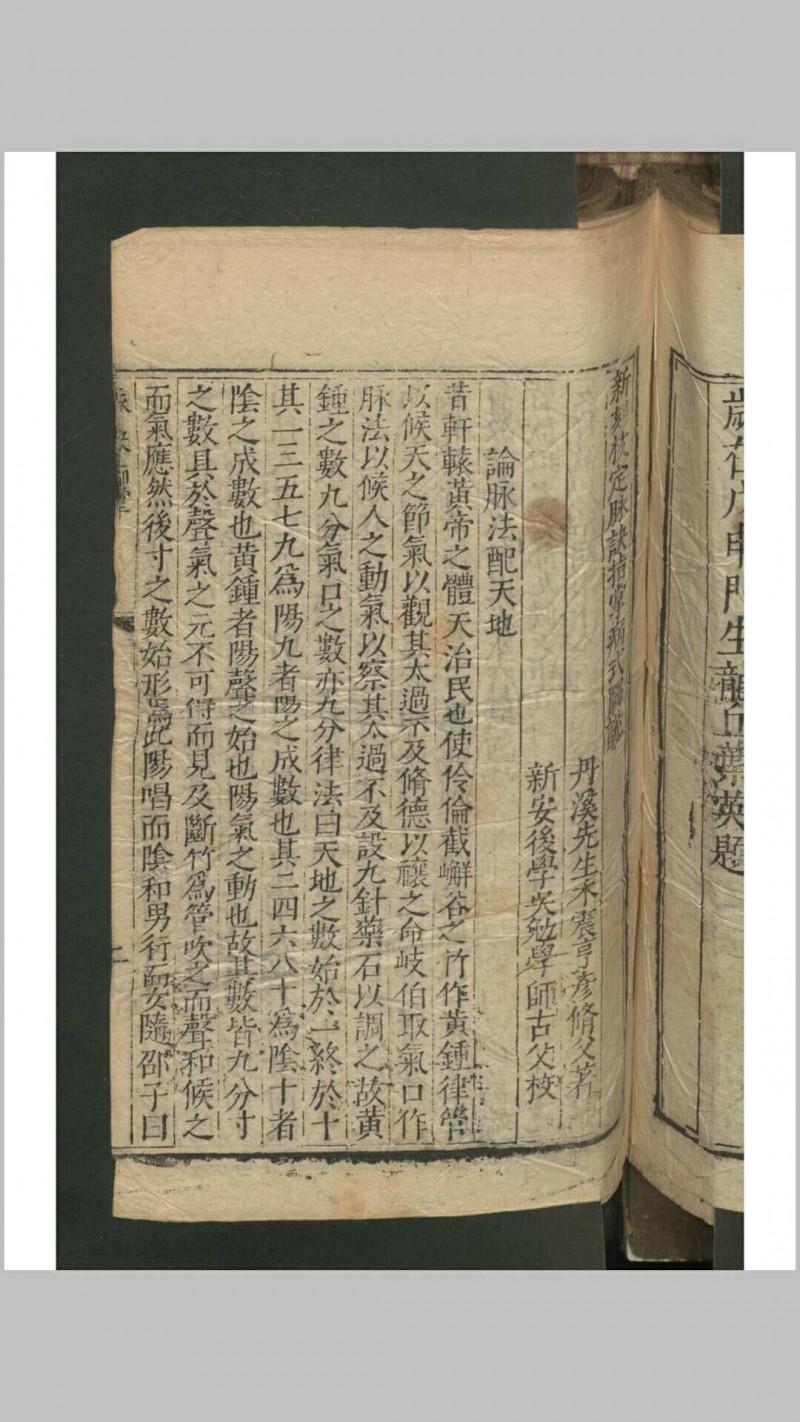 歲在戊申門生龍丘葉英題
新刻校定脉訣指掌病式圖說
丹溪先生朱震亨彥脩父著
新安後學吳勉學師古父校
論脉法配天地
昔軒轅黃帝之體天治民也使伶倫截嶰谷之竹作黃鍾律管
以候天之節氣以觀其太過不及脩德以禳之命岐伯取氣口作
脉法以候人之動氣以察其太過不及設九針藥石以調之故黃
鍾之數九分氣口之數亦九分律法曰天地之數始於一終於十
其一三五七九爲陽九者陽之成數也其二四六八十爲陰十者
陰之成數也黃鍾者陽聲之始也陽氣之動也故其數皆九分寸
之數具於聲氣之元不可得而見及斷竹爲管吹之而聲和候之
而氣應然後寸之數始形焉此陽唱而陰和男行而女隨邵子曰